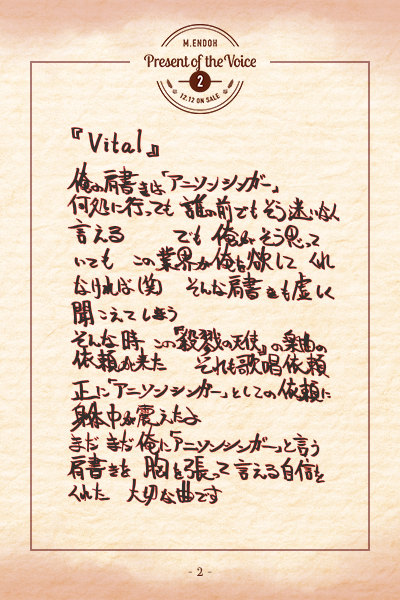 M.ENDOH
Present of the Voice
2
12.12 ON SALE
『Vital』
俺の肩書きは「アニソンシンガー」
何処に行っても 誰の前でもそう迷いなく
言える でも 俺がそう思って
いても この業界が俺を欲して くれ
なければ(笑) そんな肩書きも虚しく
聞こえてしまう
そんな時 この『殺戮の天使』の楽曲の
依頼が来た それも歌唱依頼
正に「アニソンシンガー」としての依頼に
身体中が震えたよ
まだまだ俺に「アニソンシンガー」と言う
肩書きを 胸を張って言える自信を
くれた 大切な曲です
- 2 -